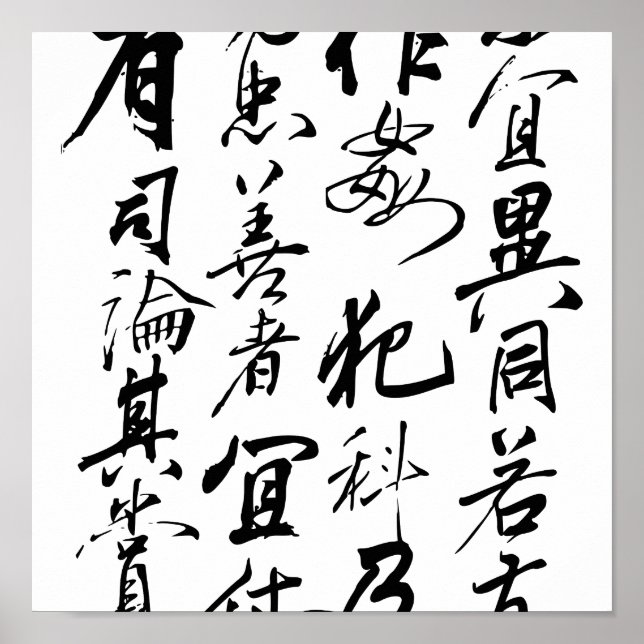 宜異同若有
作姦犯科及
忠善者宜付
有司論其賞